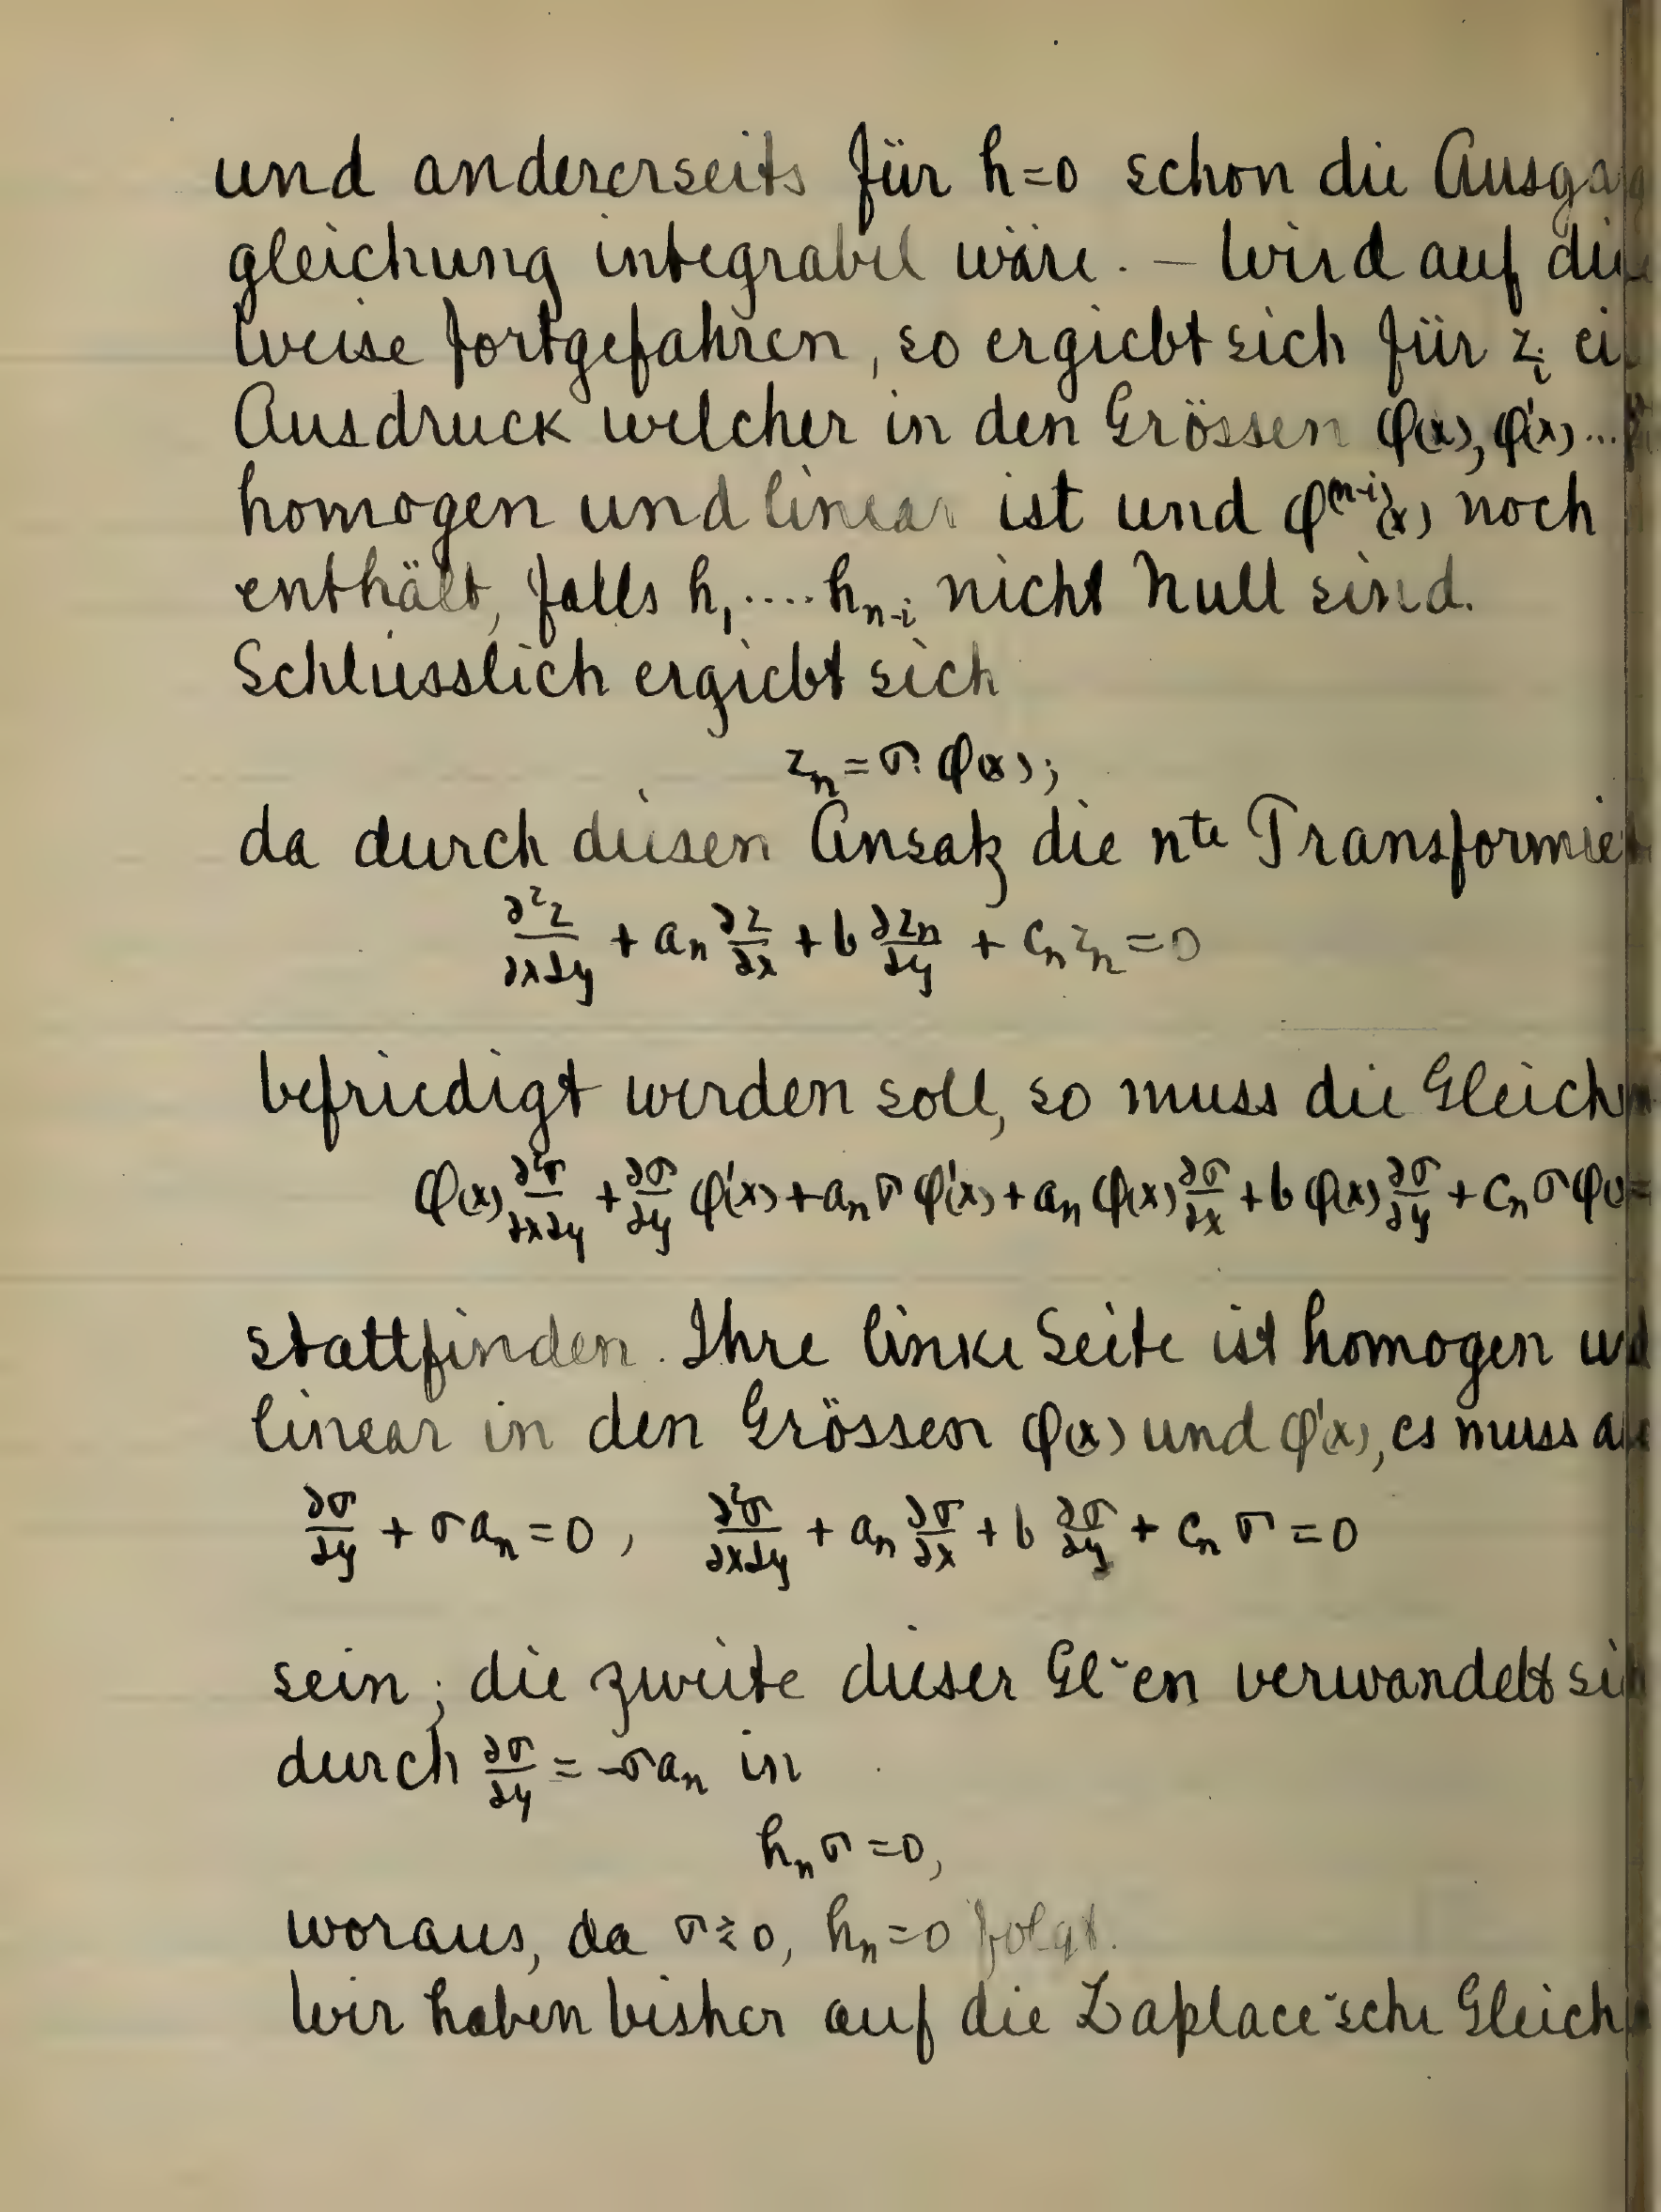 und andererseits für h=0 schon die Ausgang
gleichung integrabel wäre. – Wird auf die
Weise fortgefahren, so ergiebt sich für z_i ei
Ausdruck welcher in den Grössen φ(x), φ'(x) ...
homogen und linear ist und φ^(n-i)(x) noch
enthält, falls h_1 .... h_{n-i} nicht Null sind.
Schliesslich ergiebt sich
z_n = σ φ(x);
da durch diesen Ansatz die nte Transformie
∂²z/∂x∂y + a_n ∂z/∂x + b ∂z_n/∂y + c_n z_n = 0
befriedigt werden soll, so muss die Gleich
φ(x) ∂²σ/∂x∂y + ∂σ/∂y φ'(x) + a_n σ φ'(x) + a_n φ(x) ∂σ/∂x + b φ(x) ∂σ/∂y + c_n σ φ(x) =
stattfinden. Ihre linke Seite ist homogen und
linear in den Grössen φ(x) und φ'(x), es muss
∂σ/∂y + σ a_n = 0, ∂²σ/∂x∂y + a_n ∂σ/∂x + b ∂σ/∂y + c_n σ = 0
sein; die zweite dieser Gl~en verwandelt si
durch ∂σ/∂y = -σ a_n in
h_n σ = 0,
woraus, da σ ≷ 0, h_n = 0 folgt.
Wir haben bisher auf die Laplace'sche Gleich